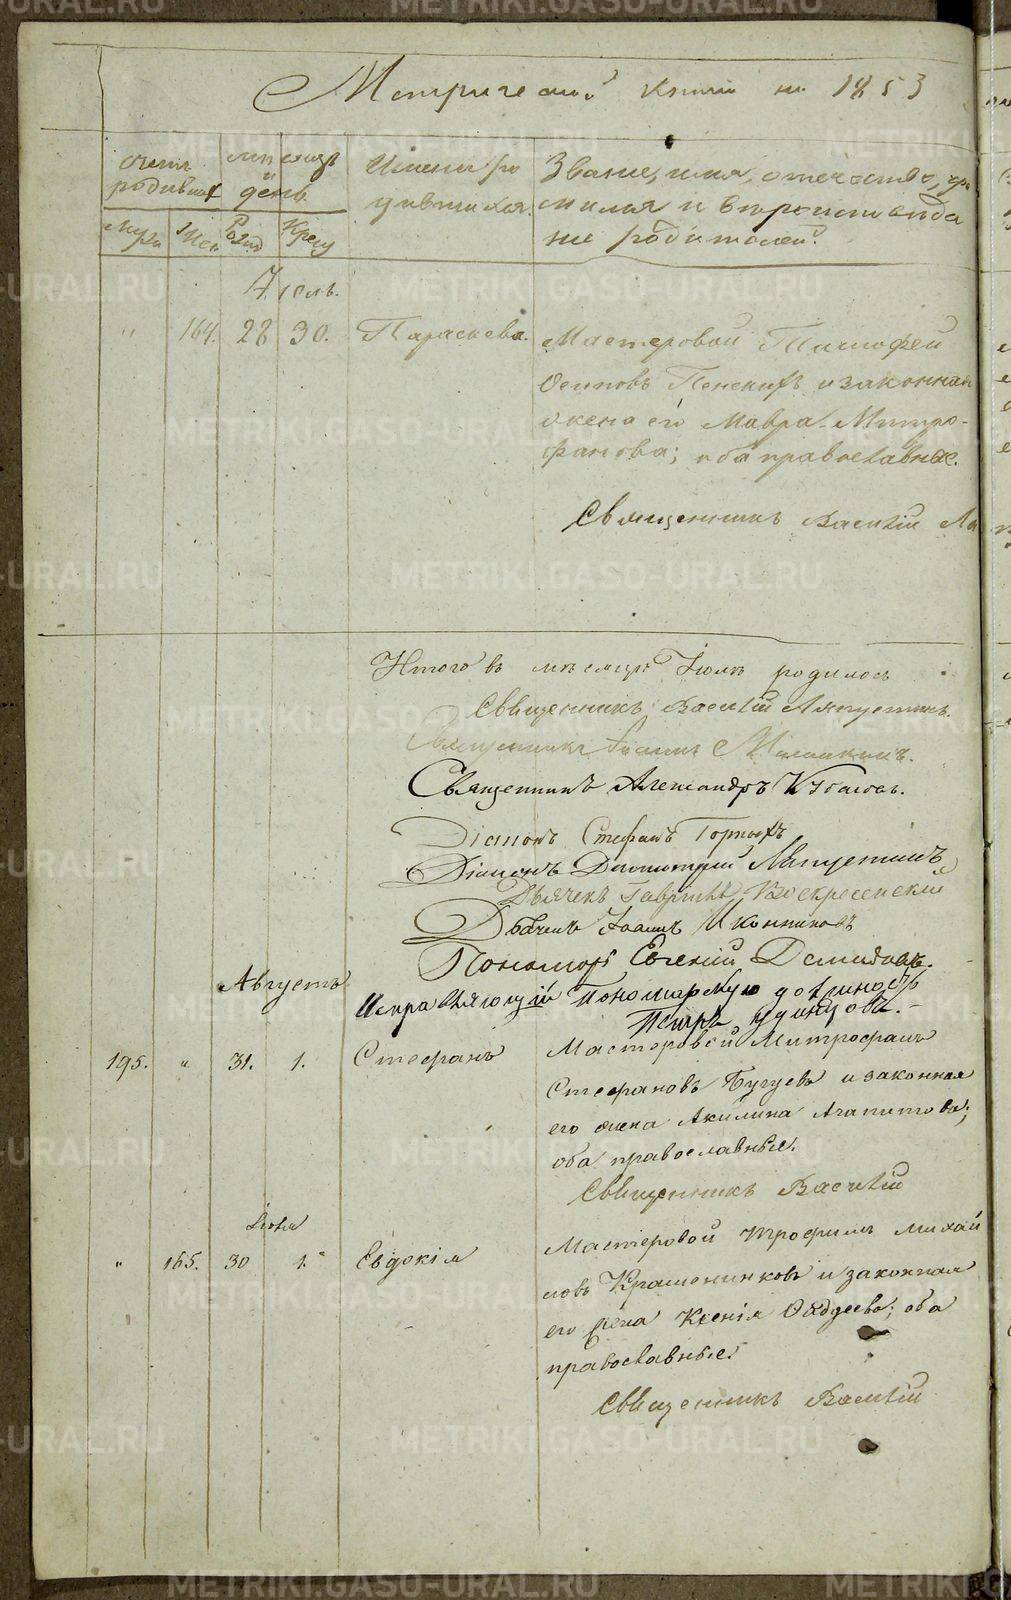 Метрической книги на 1853
Счетъ родившихся
мѣсяцъ и день
Имена родившихся.
Званіе, имя, отечество, фамилія и вѣроисповѣданіе родителей.
Муж.
Жен.
Рожд.
Крещ.
Іюль.
" 164. 28 30. Параскева. Мастеровой Тимофей
Осиповъ Пенскихъ и законная
жена его Мавра Митро-
фанова; оба православные.
Священникъ Василій Ля
Итого въ мѣсяцѣ Іюлѣ родилось
Священникъ Василій Ляпустинъ.
Священникъ Іоаннъ
Священникъ Александръ
Діаконъ Стефанъ Горныхъ
Діаконъ Димитрій Ляпустинъ
Дьячекъ Гавріилъ Воскресенскій
Дьячекъ Іоаннъ Иконниковъ
Пономарь Евгений Демидовъ.
Августъ
Исправляющій Пономарскую должность
Петръ Удинцовъ.
195. " 31. 1. Стефанъ Мастеровой Митрофанъ
Стефановъ и законная
его жена Акилина Агапитова;
оба православные.
Священникъ Василій
Іюля
" 165. 30 1. Евдокія Мастеровой Трофимъ Михай
ловъ Крашенинковъ и законная
его жена Ксенія Фаддеева; оба
православные.
Священникъ Василій
METRIKI.GASO-URAL.RU